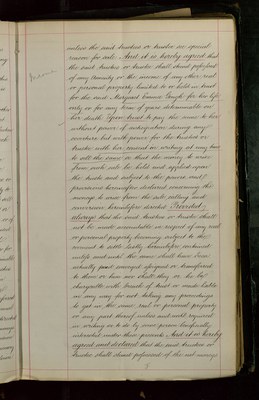 unless the said trustees or trustee see special
reason for sale And it is hereby agreed that
the said trustees or trustee shall stand possessed
of any annuity or the income of any other real
or personal property limited to or held in trust
for the said Margaret for her life
only or for any term of years determinable on
her death Upon trust to pay the same to her
without power of anticipation during any
coverture but with power for the trustees or
trustee with her consent in writing at any time
to sell the same so that the money to arise
from such sale be held and applied upon
the trusts and subject to the powers and
provisions hereinafter declared concerning the
moneys to arise from the sale calling and
conversion hereinbefore directed Provided
always that the said trustees or trustee shall
not be made accountable in respect of any real
or personal property becoming subject to the
covenant to settle lastly hereinbefore contained
unless and until the same shall have been
actually conveyed assigned or transferred
to them or him nor shall they or he be
chargeable with breach of trust or made liable
in any way for not taking any proceedings
to get in the same real or personal property
or any part thereof unless and until required
in writing so to do by some person beneficially
interested under these presents And it is hereby
agreed and declared that the said trustees or
trustee shall stand possessed of the net moneys
Income